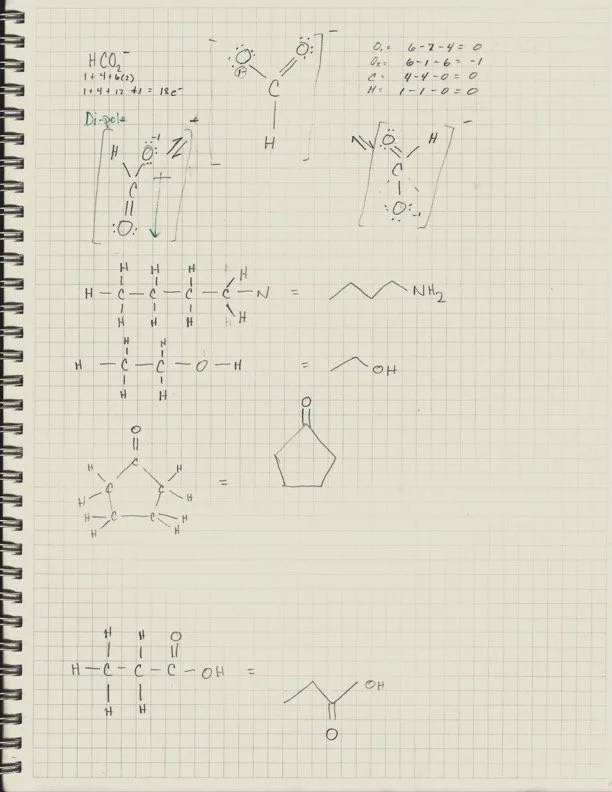 HCO₂⁻
1+4+6(2)
1+4+12+1 = 18e⁻
O₁= 6-2-4=0
O₂= 6-1-6=-1
C= 4-4-0=0
H= 1-1-0=0
O O
C
H
-
Di-pole
H O -1
C
O
O H
C
O -1
-
H H H H
H - C - C - C - C - N = NH₂
H H H H
H H
H - C - C - O - H = OH
H H
O
O
C
H C C H
H H =
H C C H
H H
H H O
H - C - C - C - OH = OH
H H
O